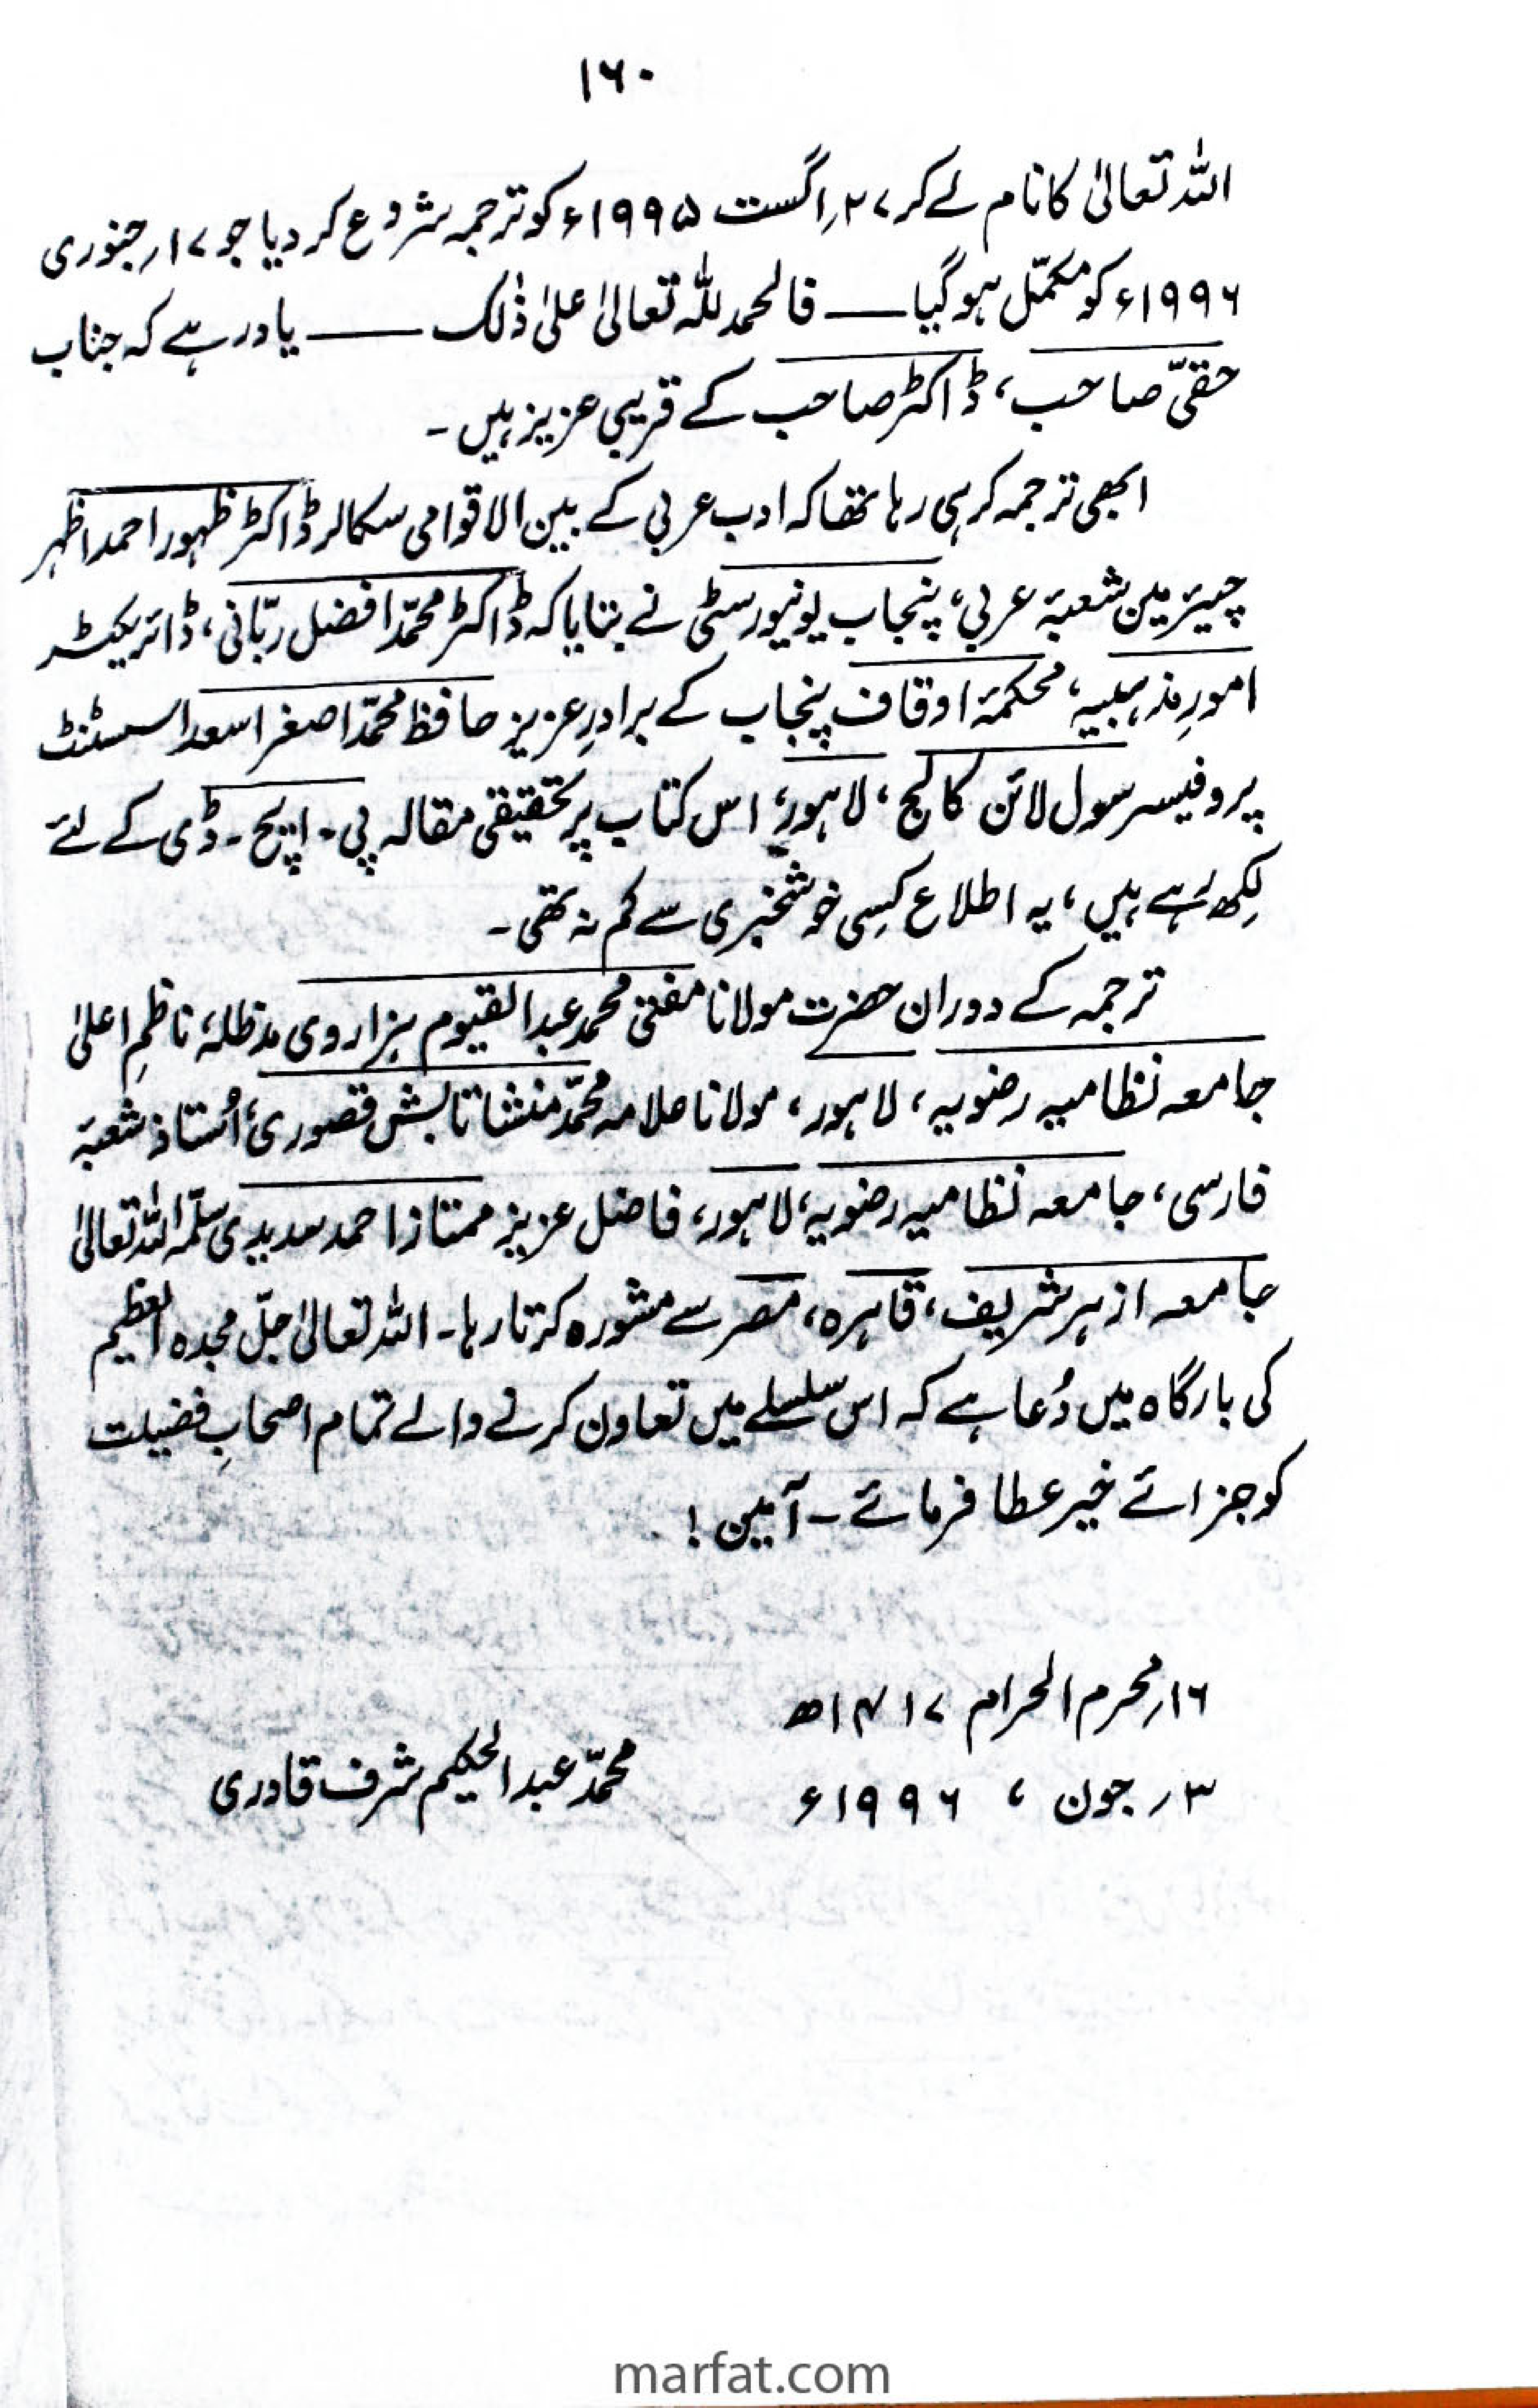 ۱۶۰
اللہ تعالیٰ کا نام لے کر ۲۷؍اگست ۱۹۹۵ء کو ترجمہ شروع کر دیا جو ۱۷؍جنوری
۱۹۹۶ء کو مکمّل ہو گیا ـــــ فالحمد للہ تعالیٰ علیٰ ذٰلک ـــــ یاد رہے کہ جناب
حقیّ صاحب، ڈاکٹر صاحب کے قریبی عزیز ہیں۔
ابھی ترجمہ کر ہی رہا تھا کہ ادب عربی کے بین الاقوامی سکالر ڈاکٹر ظہور احمد اظہر
چیئرمین شعبۂ عربی، پنجاب یونیورسٹی نے بتایا کہ ڈاکٹر محمّد افضل ربّانی، ڈائریکٹر
امورِ مذہبیہ، محکمۂ اوقاف پنجاب کے برادرِ عزیز حافظ محمّد اصغر اسعد اسسٹنٹ
پروفیسر سول لائن کالج، لاہور، اس کتاب پر تحقیقی مقالہ پی۔ایچ۔ڈی کے لئے
لِکھ رہے ہیں، یہ اطلاع کِسی خوشخبری سے کم نہ تھی۔
ترجمہ کے دوران حضرت مولانا مفتی محمد عبدالقیوم ہزاروی مدظلہٗ، ناظمِ اعلیٰ
جامعہ نظامیہ رضویہ، لاہور، مولانا علامہ محمّد منشا تابش قصوری، اُستاذ شعبۂ
فارسی، جامعہ نظامیہ رضویہ، لاہور، فاضل عزیز ممتاز احمد سدیدی سلّمہ اللہ تعالیٰ
جامعہ ازہر شریف، قاہرہ، مصر سے مشورہ کرتا رہا۔ اللہ تعالیٰ جلّ مجدہ العظیم
کی بارگاہ میں دُعا ہے کہ اس سلسلے میں تعاون کرنے والے تمام اصحابِ فضیلت
کو جزائے خیر عطا فرمائے۔ آمین!
۱۶؍محرم الحرام ۱۴۱۷ھ
۳؍ جون ، ۱۹۹۶ء
محمّد عبدالحکیم شرف قادری
marfat.com